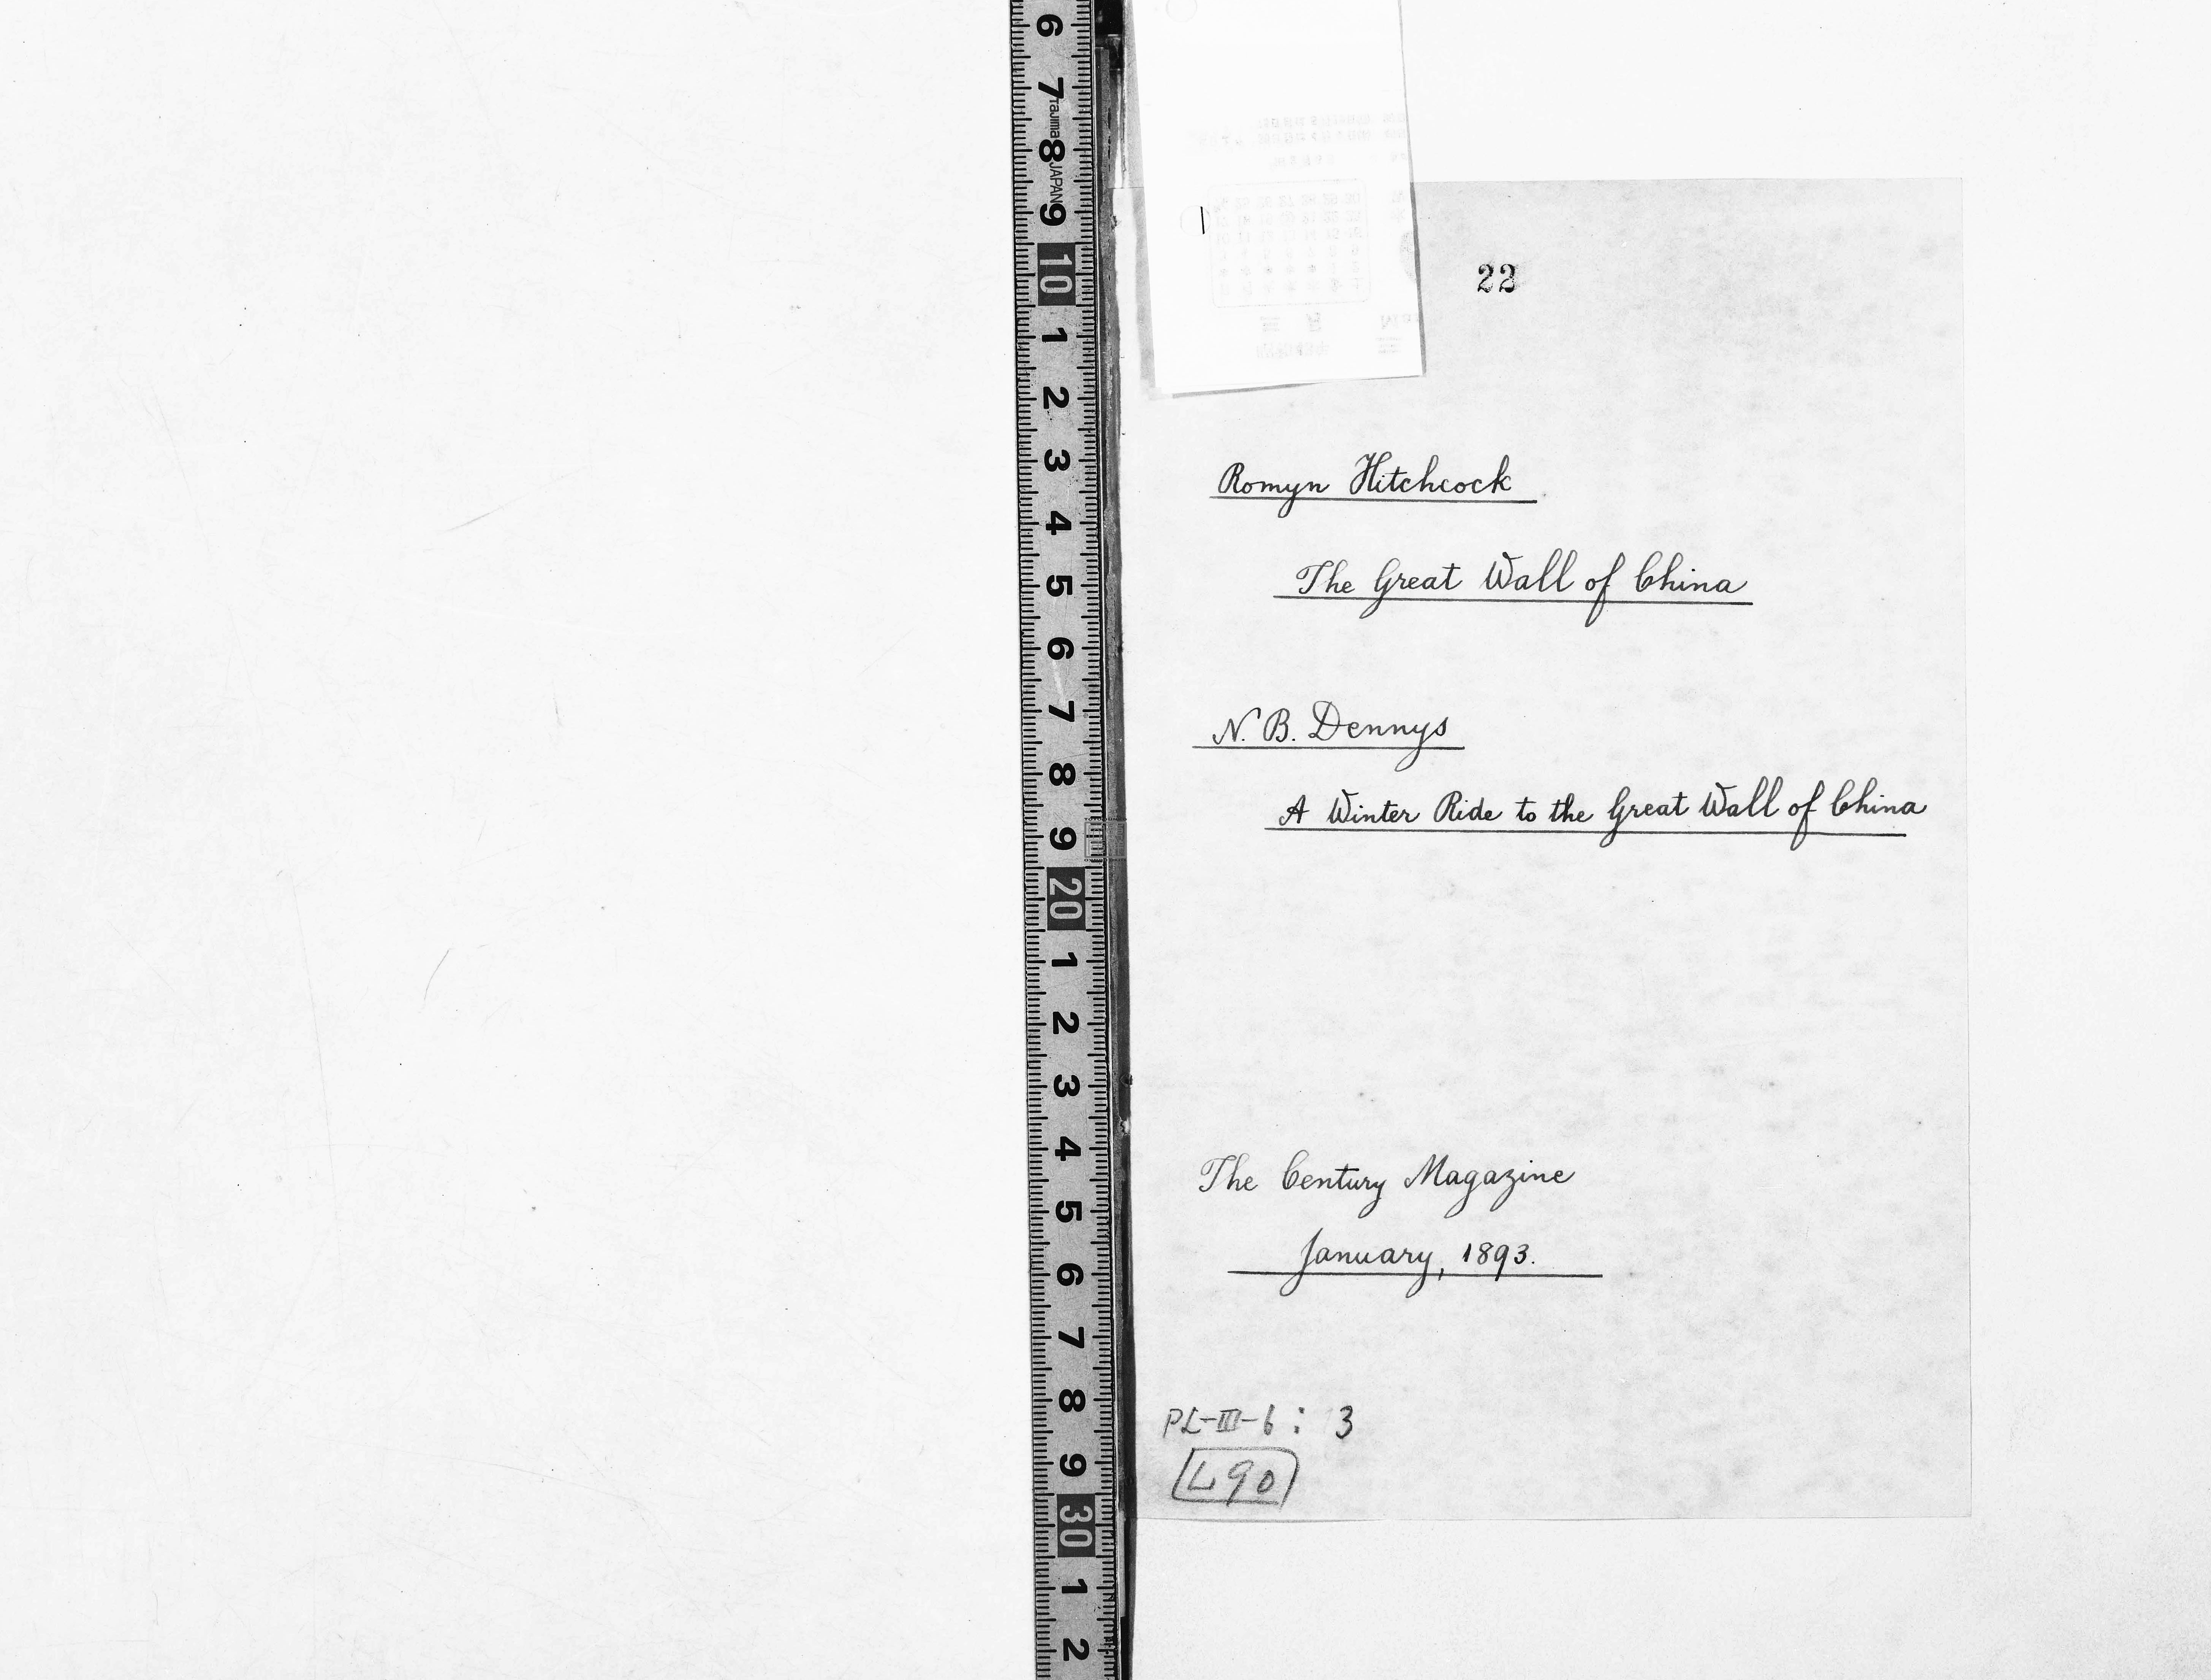 6
7
tajima
8
JAPAN
9
10
1
2
3
4
5
6
7
8
9
20
1
2
3
4
5
6
7
8
9
30
1
2
1
22
Romyn Hitchcock
The Great Wall of China
N. B. Dennys
A Winter Ride to the Great Wall of China
The Century Magazine
January, 1893.
PL-III-6 : 3
L90